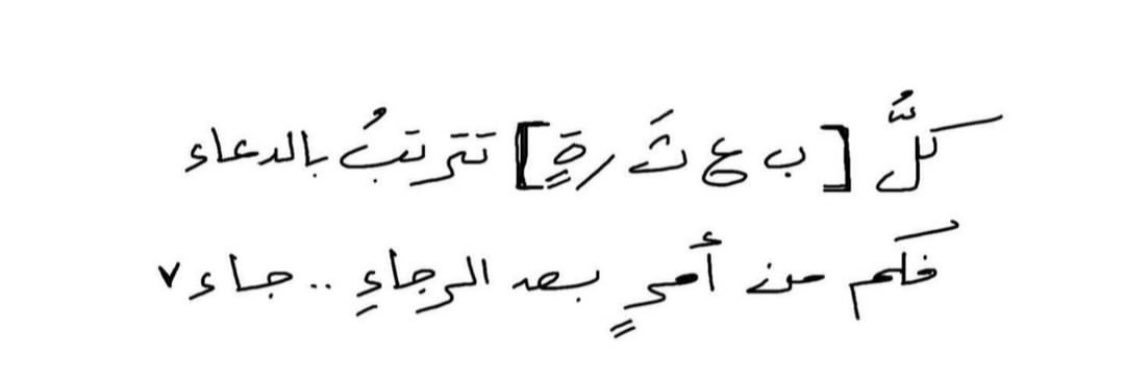 كلُّ [ب ع ثَ رةٍ] تترتبُ بالدعاء
فكَم من أمرٍ بعد الرجاءِ .. جاء ٧